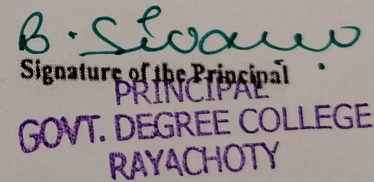 B.
Signature of the Principal
PRINCIPAL
GOVT. DEGREE COLLEGE
RAYACHOTY